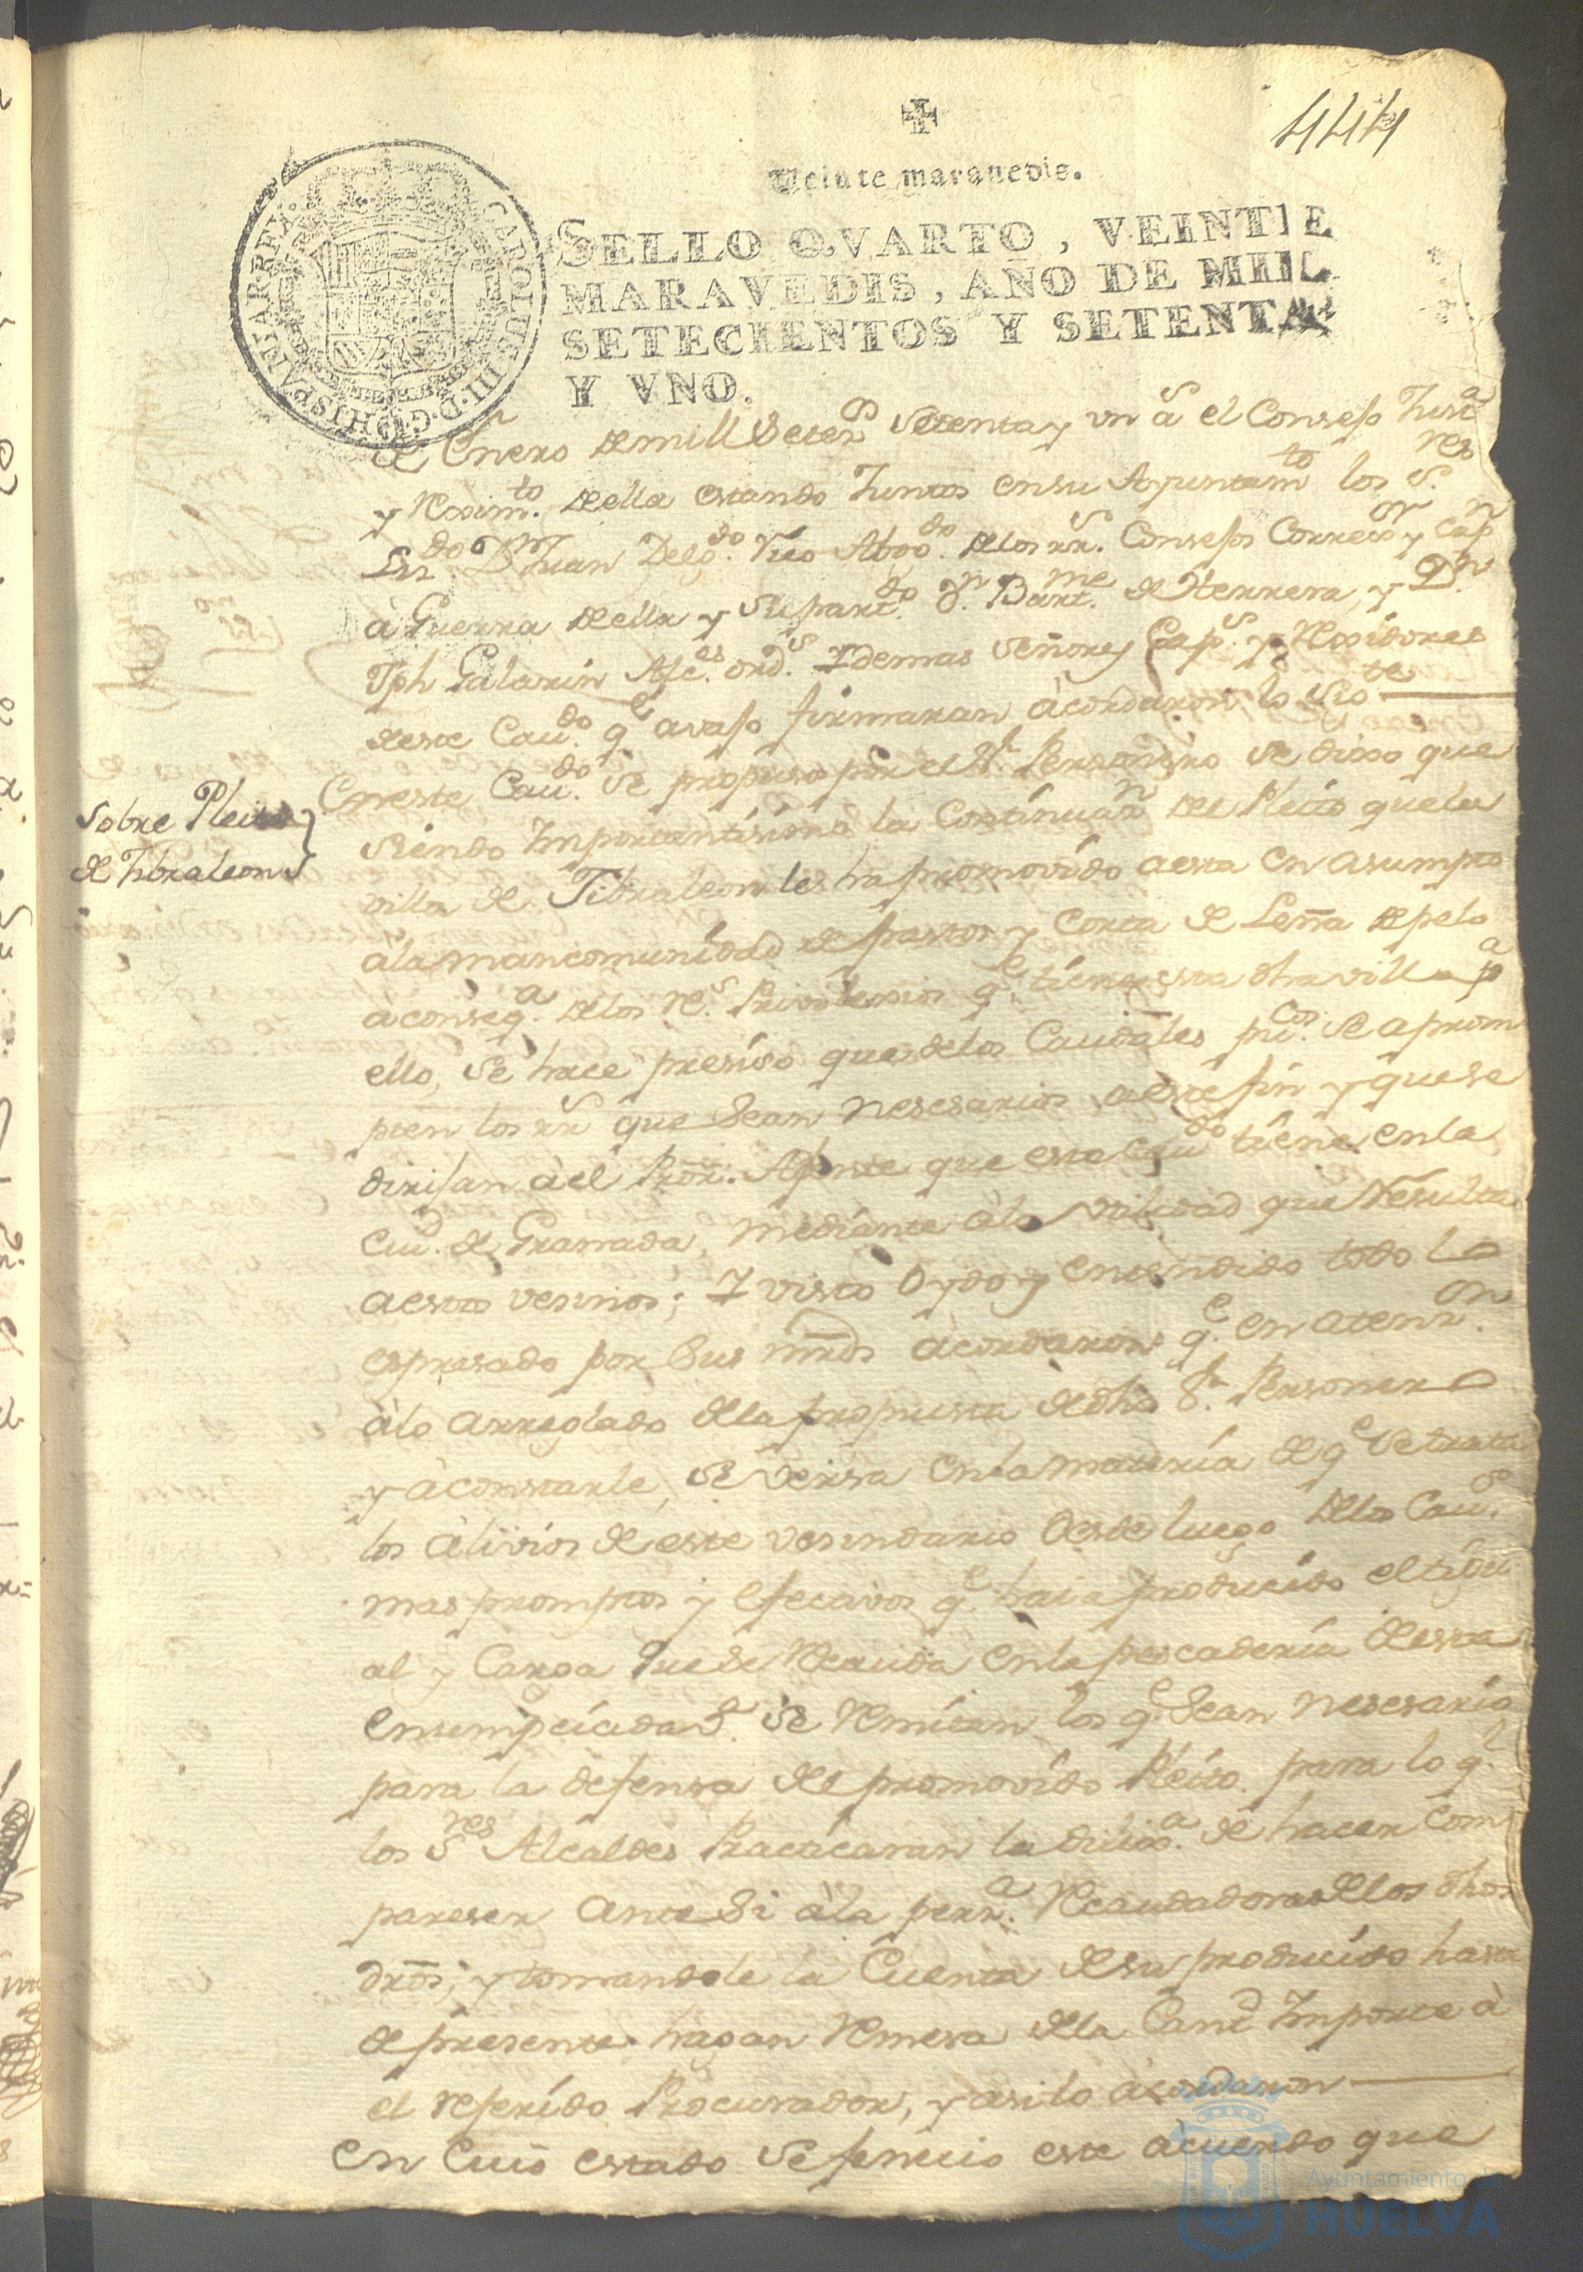 444
Veinte maravedis.
SELLO QVARTO, VEINTE
MARAVEDIS, AÑO DE MIL
SETECIENTOS Y SETENTA
Y VNO.
CAROLUS III D. G. HISPANIAR. REX
de Enero de mill setez.s setenta y un a.s el Consejo Just.a
y Rexim.to de ella estando Juntos en su Ayuntam.to los S.res
Liz.do D.n Juan Delg.do Vico Abog.do de los rr.s Consejos Correg.or y Cap.n
à Guerra de ella y su part.do D.n Bart.me de Herrera, y D.n
Jph Galarin Alc.es ord.s Y demas Señores Cap.s y Rexidores
de este Cau.do q.e avajo firmaran àcordaron lo sig.te
Sobre Pleito
de Jibraleon
En este Cau.do se propuso por el S.r Personero se dixo que
siendo Importantisima la Continuaz.n del Pleito que la
villa de Jibraleon le ha promovido a esta en asumpto
àla mancomunidad de pastos y Corta de Leña de pelo
à conseq.a de los R.s Privilexios q.e tiene esta dha villa p.a
ello, se hace presiso que de los Caudales pu.cos se aprom
pten los rr.s que sean nesesarios a este fin y que se
dirijan àel Pror. Ajente que este Cau.do tiene en la
Ciud. de Granada, mediante àla utilidad que Resulta
a estos vesinos; Y visto Oydo y entendido todo lo
espresado por sus mrds àcordaron q.e en atenz.on
àlo arreglado de la propuesta de dho S.r Personero
y à constarle, se versa en la materia de q.e se trata
los àlivios de este vesindario desde luego de los Cau.s
mas promptos y efectivos q.e haia producido el
al y Carga que se Recauda en la pescaderia de esta
se Remitan los q.e sean nesesarios
para la defensa del promovido Pleito. para lo q.l
los S.res Alcaldes Practicaran la dilix.a de hacer Com
pareser ante si àla pers.a Recaudadora de los dhos
dros; y tomandole la Cuenta de su producido hasta
de presente hagan Remesa de la Cant.d Importe à
el referido Procurador, y asi lo àcordaron
En cuio estado se fenecio este àcuerdo que
Ayuntamiento de
HUELVA